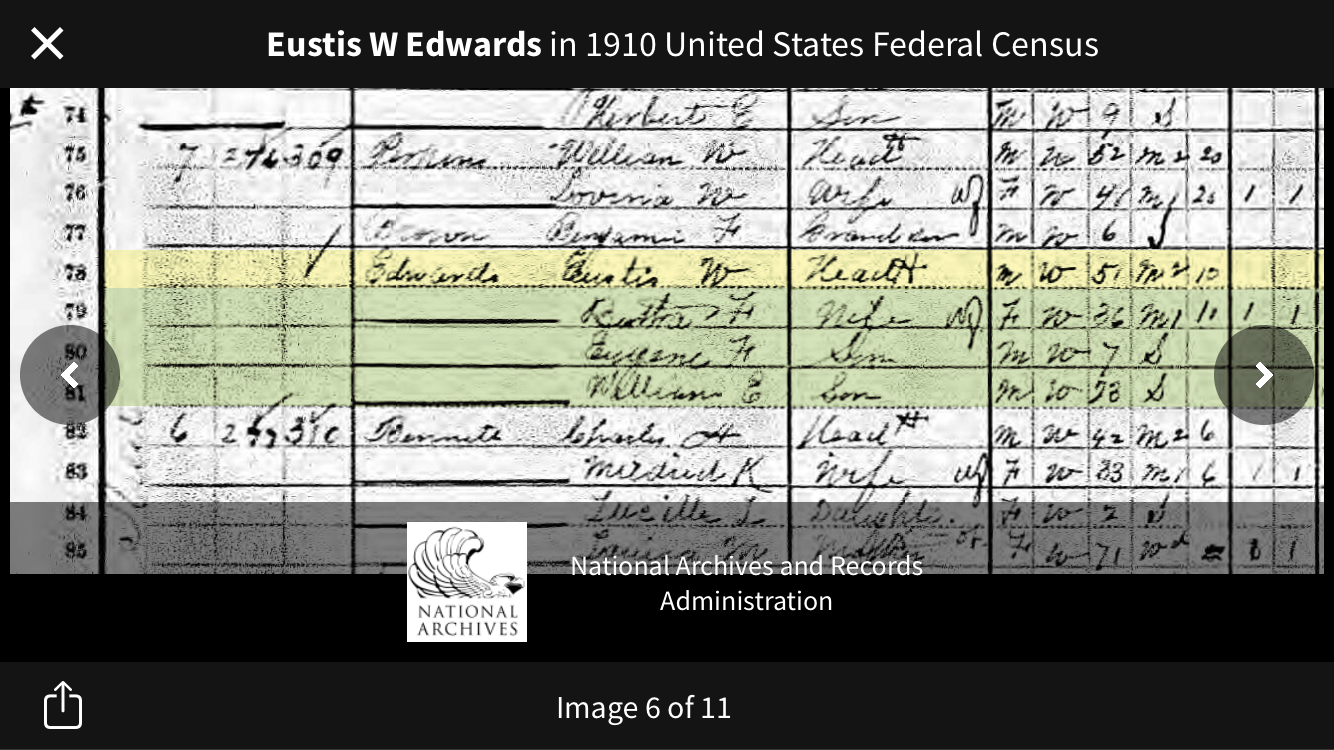 Eustis W Edwards in 1910 United States Federal Census
74 Herbert E Son M W 9 S
75 7 276 309 Brown William W Head M W 52 M2 20
76 Lovinia W Wife F W M1 20 1 1
77 Brown Benjamin F Grandson M W 6 S
78 Edwards Eustis W Head M W 51 M2 10
79 F Wife F W 36 M1 1 1
80 Eugene F Son M W 7 S
81 William E Son M W 23 S
82 6 277 310 Bennett Charles H Head M W 42 M2 6
83 Mildred K Wife F W 33 M1 6 1 1
84 Lucille L Daughter F W 2 S
85 F W 71 Wd 1
National Archives and Records
Administration
NATIONAL
ARCHIVES
Image 6 of 11